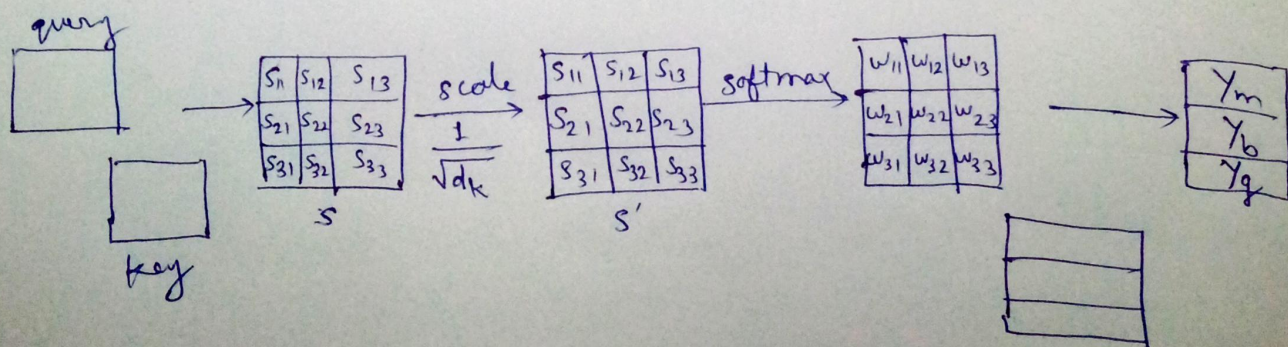 query
key
S11 S12 S13
S21 S22 S23
S31 S32 S33
S
scale
1
√dk
S11 S12 S13
S21 S22 S23
S31 S32 S33
S'
softmax
w11 w12 w13
w21 w22 w23
w31 w32 w33
Ym
Yb
Yg